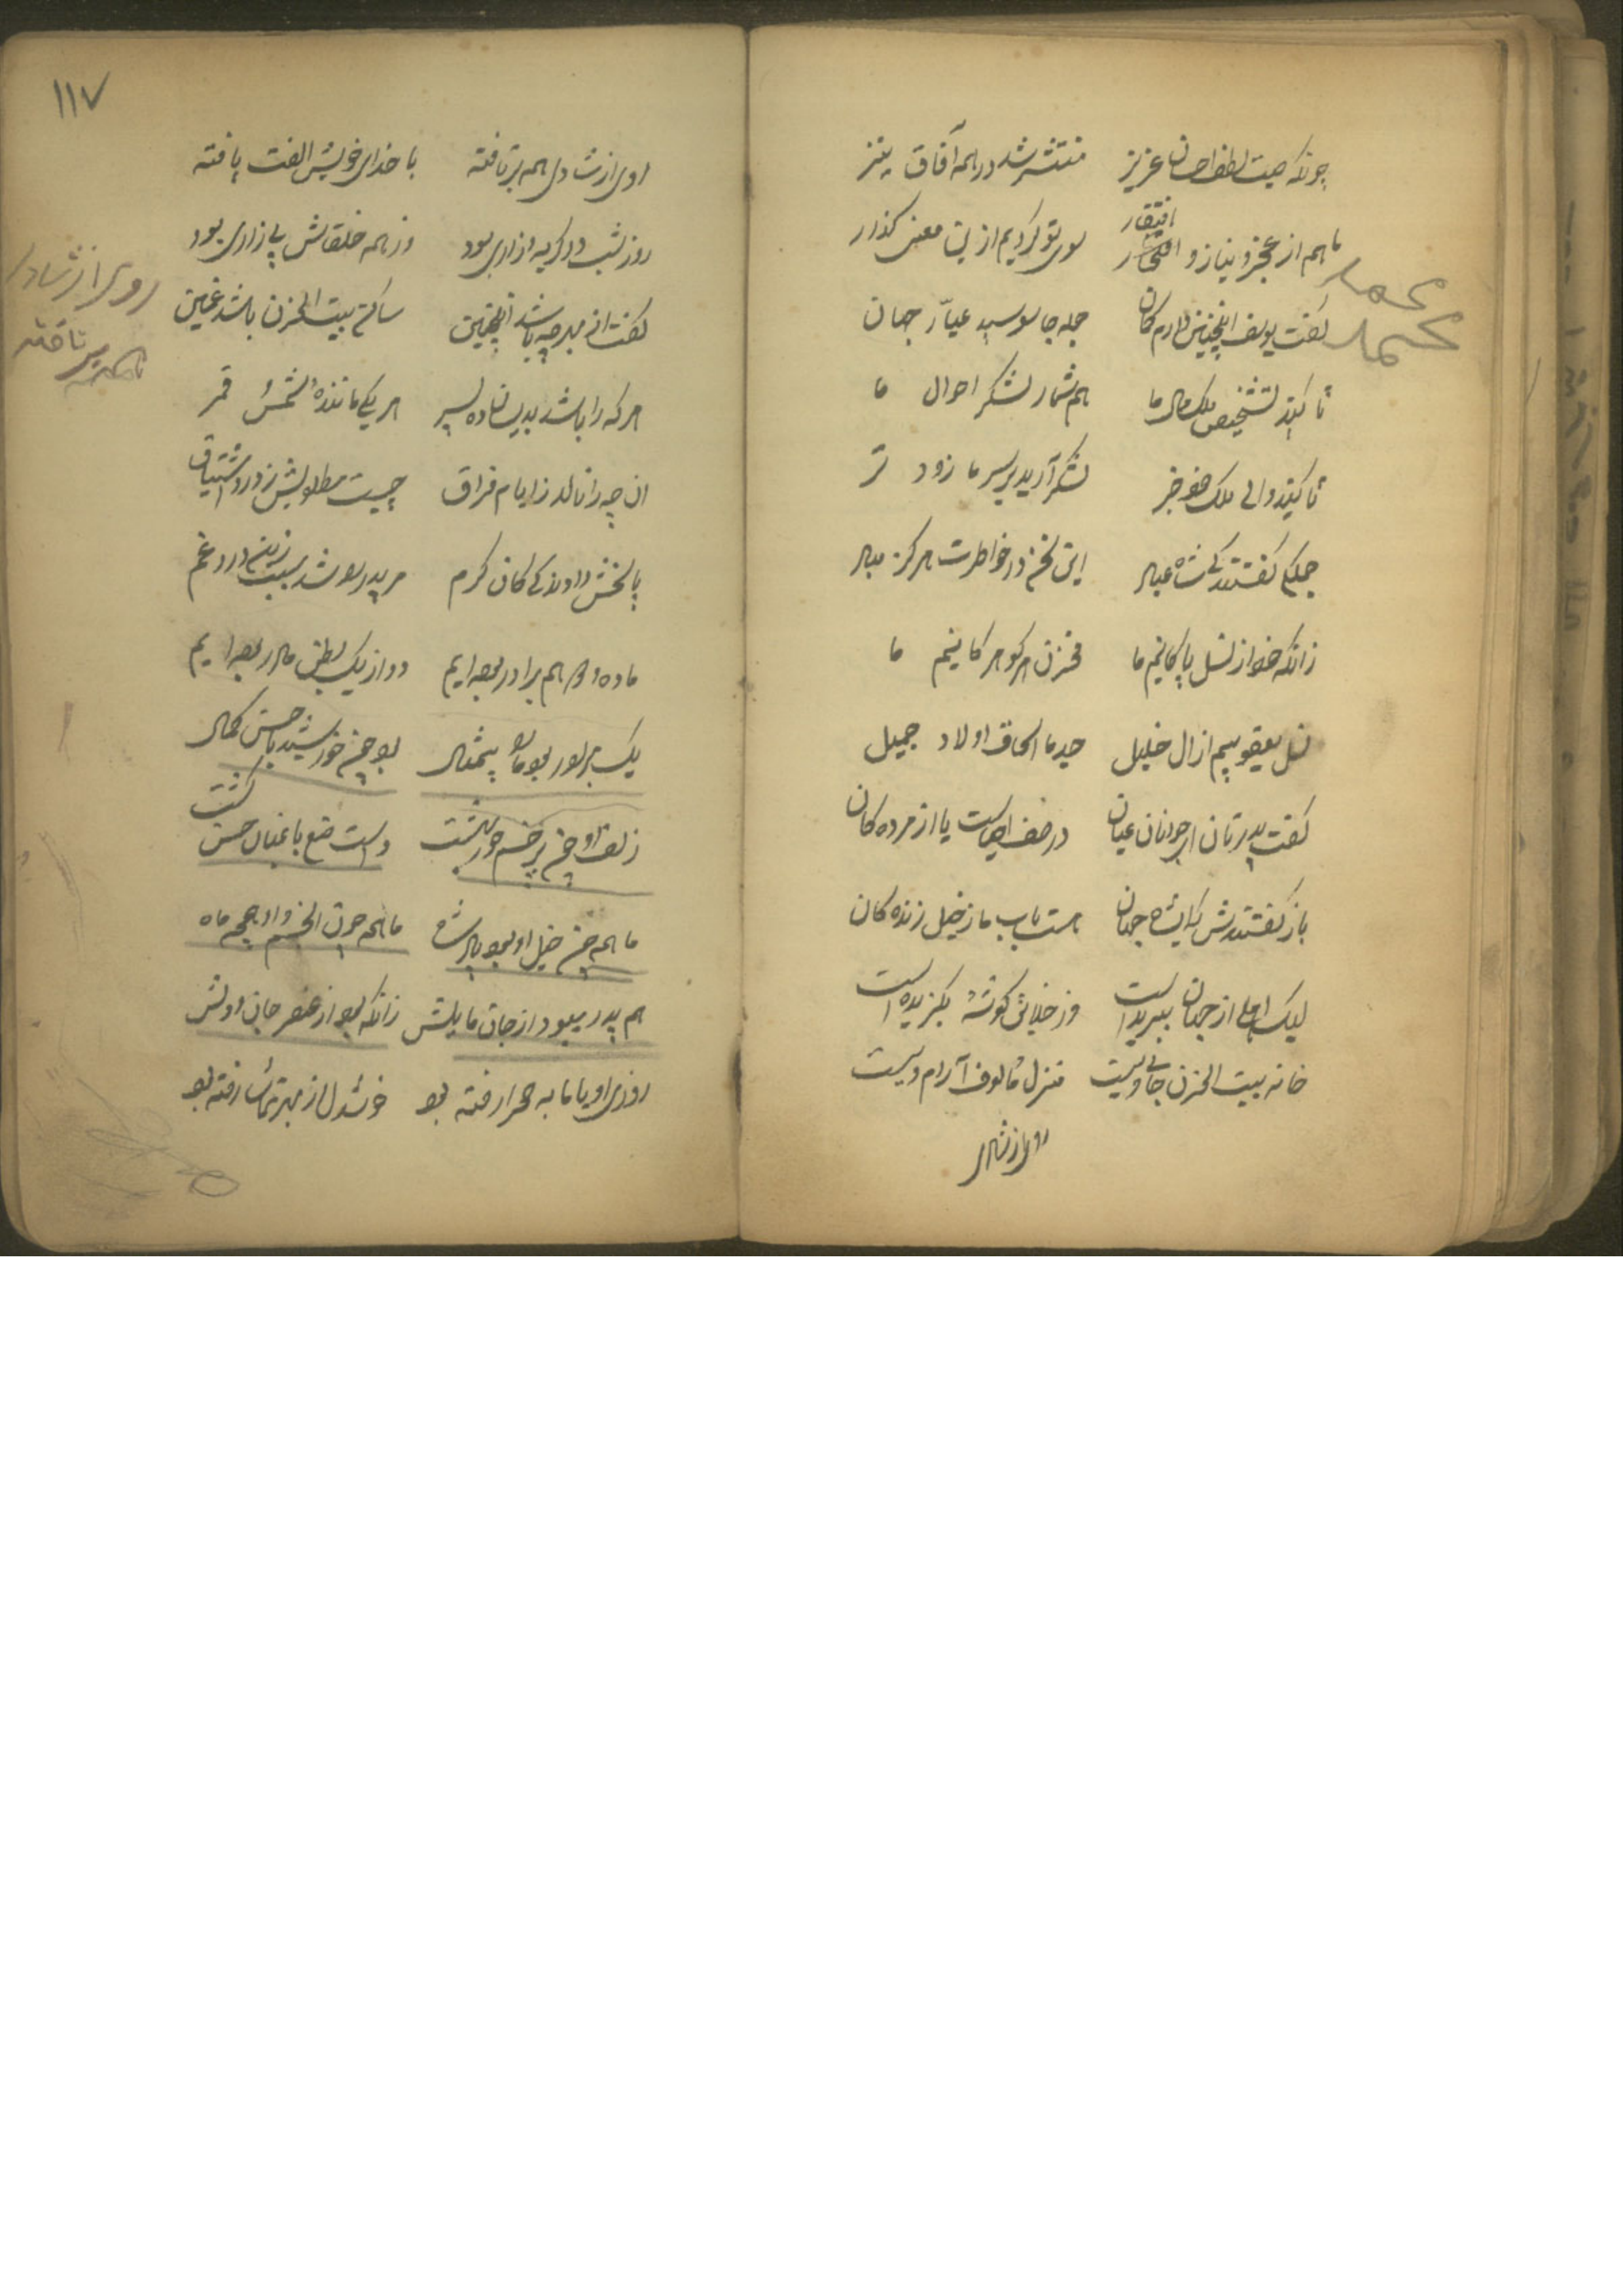 چونکه صیت لطف احسان عزیز منتشر شد در همه آفاق نیز
افتقار
ما هم از عجز و نیاز و افتخار سوی تو کردیم ازین معنی کذار
کفت یوسف اینچنین دارم کمان جمله جاسوسید عیّار جهان
تا کنید تشخیص ملک مال ما هم شمار لشکر احوال ما
تا کنید والی ملک خود خبر لشکر آرید بر سر ما زود تر
جملکی کفتند کی شاه عیال این سخن در خاطرت هرکز میال
زانکه خود از نسل پاکانیم ما مخزن هر کوهر کانیم ما
نسل یعقوبیم از ال خلیل جد ما اسحاق اولاد جمیل
کفت پدرتان ای جوانان عیان در صف احیاست یا از مرده کان
باز کفتندش که ای شاه جهان هست باب ما ز خیل زنده کان
لیک او از جهان ببریده است وز خلایق کوشهٔ بکزیده است
خانه بیت الحزن جای ویست منزل مألوف آرام ویست
روی از شادی
۱۱۷
روی از شادی همه برتافته با خدای خویش الفت یافته
روز شب در کریه و زاری بود وز همه خلقانش بیزاری بود
کفت از بهر چه باشد اینچنین ساکن بیت الحزن باشد غمین
هر که را باشد بدینسان ده پسر هر یکی مانندهٔ شمس قمر
ان چه را نالد ز ایام فراق چیست مطلوبش ز درد اشتیاق
پاسخش دادند کی کان کرم مر پدر را شد سبب زین درد غم
ما ده و دو هم برادر بوده ایم دو از یک بطن مادر بوده ایم
یک برادر بود ما را بیمثال بود چون خورشید با حسن کمال
زلف او چون بر رخش حور بهشت دست صنع باغبان حسن کشت
ما همه چون خیل او بود پادشاه ما همه چون انجم و او همچو ماه
هم پدر میبود از جان مایلش زانکه بود از عنصر جان و دلش
روزی او با ما به صحرا رفته بود خوشدل از بهر تماشا رفته بود
محمد
محمد
روی از شادی
تافته